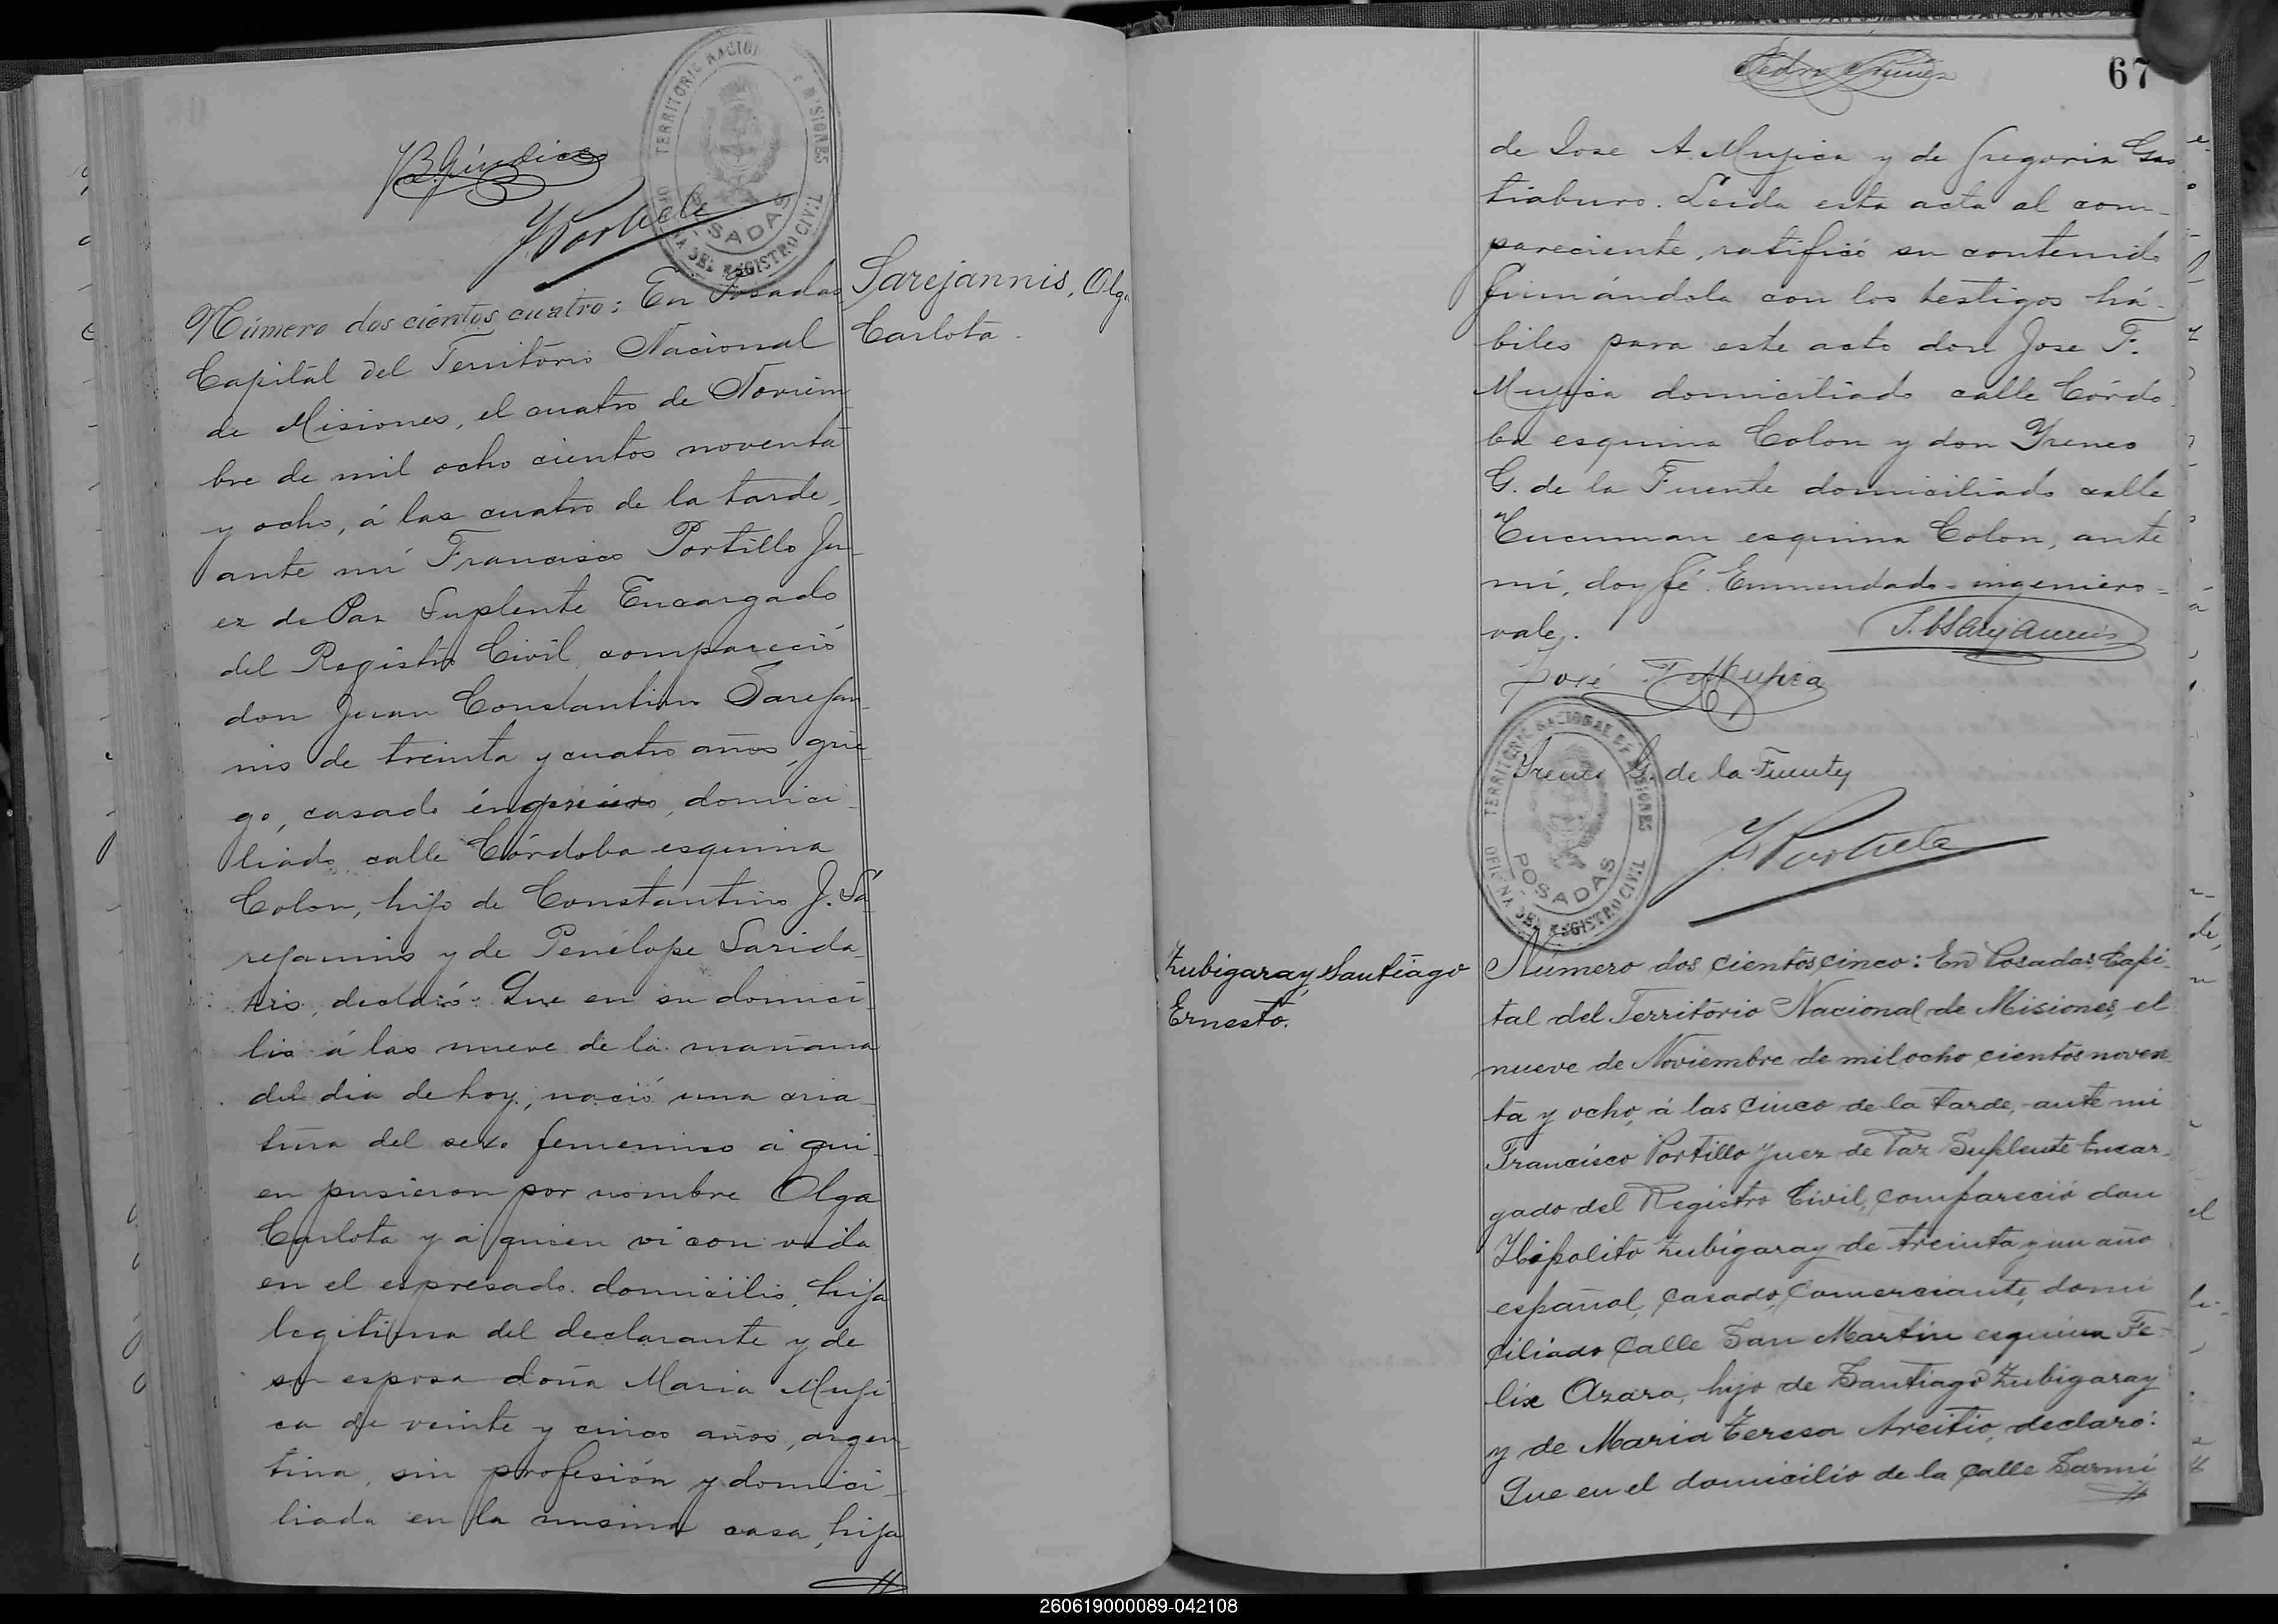 TERRITORIO NACIONAL DE MISIONES
OFICINA DEL REGISTRO CIVIL
POSADAS
Sarejannis, Olga
Carlota.
Número dos cientos cuatro: En Posadas
Capital del Territorio Nacional
de Misiones, el cuatro de Noviem
bre de mil ocho cientos noventa
y ocho, á las cuatro de la tarde,
ante mí Francisco Portillo Ju-
ez de Paz Suplente Encargado
del Registro Civil, compareció
don Juan Constantino Sarejan-
nis de treinta y cuatro años, grie-
go, casado ingeniero, domici-
liado calle Córdoba esquina
Colon, hijo de Constantino J. Sa
rejannis y de Penélope Sarida-
kis, declaró: Que en su domici-
lio á las nueve de la mañana
del dia de hoy, nació una cria-
tura del sexo femenino á qui-
en pusieron por nombre Olga
Carlota y á quien vi con vida
en el espresado domicilio, hija
legítima del declarante y de
su esposa doña Maria Muji-
ca de veinte y cinco años, argen-
tina, sin profesión y domici-
liada en la misma casa, hija
67
de Jose A. Mujica y de Gregoria Gas
tiaburo. Leida esta acta al com-
pareciente, ratificó su contenido
firmándola con los testigos há-
biles para este acto don Jose F.
Mujica domiciliado calle Córdo
ba esquina Colon y don Yreneo
G. de la Fuente domiciliado calle
Tucuman esquina Colon, ante
mí, doy fé. Enmendado-ingeniero=
vale.
José F. Mujica
Yreneo G. de la Fuente
F. Portillo
TERRITORIO NACIONAL DE MISIONES
OFICINA DEL REGISTRO CIVIL
POSADAS
Zubigaray, Santiago
Ernesto.
Número dos cientos cinco: En Posadas Capi-
tal del Territorio Nacional de Misiones, el
nueve de Noviembre de mil ocho cientos noven
ta y ocho, á las cinco de la tarde, ante mi
Francisco Portillo Juez de Paz Suplente Encar-
gado del Registro Civil, compareció don
Hipolito Zubigaray de treinta y un año
español, casado, Comerciante, domi
ciliado Calle San Martin esquina Fe-
lix Azara, hijo de Santiago Zubigaray
y de Maria Teresa Arcitio, declaro:
Que en el domicilio de la Calle Sarmi
260619000089-042108